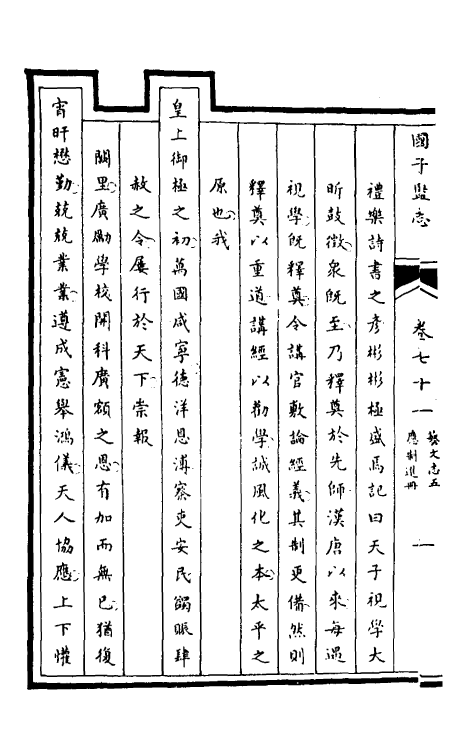 國子監志 卷七十一 藝文志五 應制進冊 一
禮樂詩書之彥彬彬極盛焉記曰天子視學大
昕鼓徵衆既至乃釋奠於先師漢唐以來每遇
視學既釋奠令講官敷論經義其制更備然則
釋奠以重道講經以勸學誠風化之本太平之
原也我
皇上御極之初萬國咸寧德洋恩溥察吏安民蠲賑肆
赦之令屢行於天下崇報
闕里廣勵學校開科廣額之恩有加而無已猶復
宵旰懋勤兢兢業業遵成憲舉鴻儀天人協應上下懽